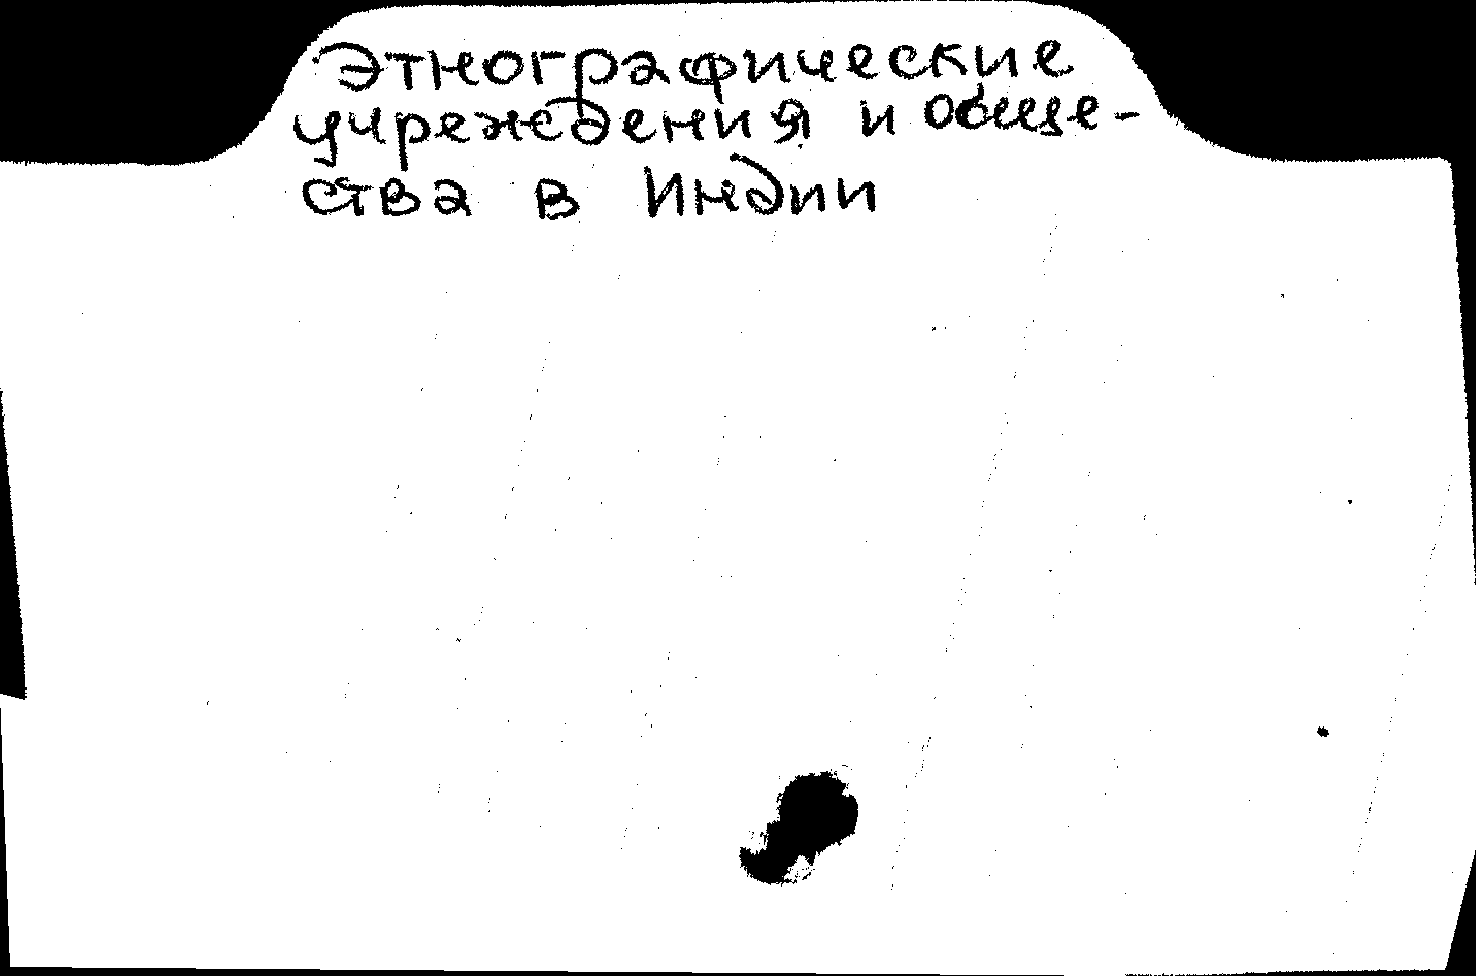 Этнографические
учреждения и обще-
ства в Индии